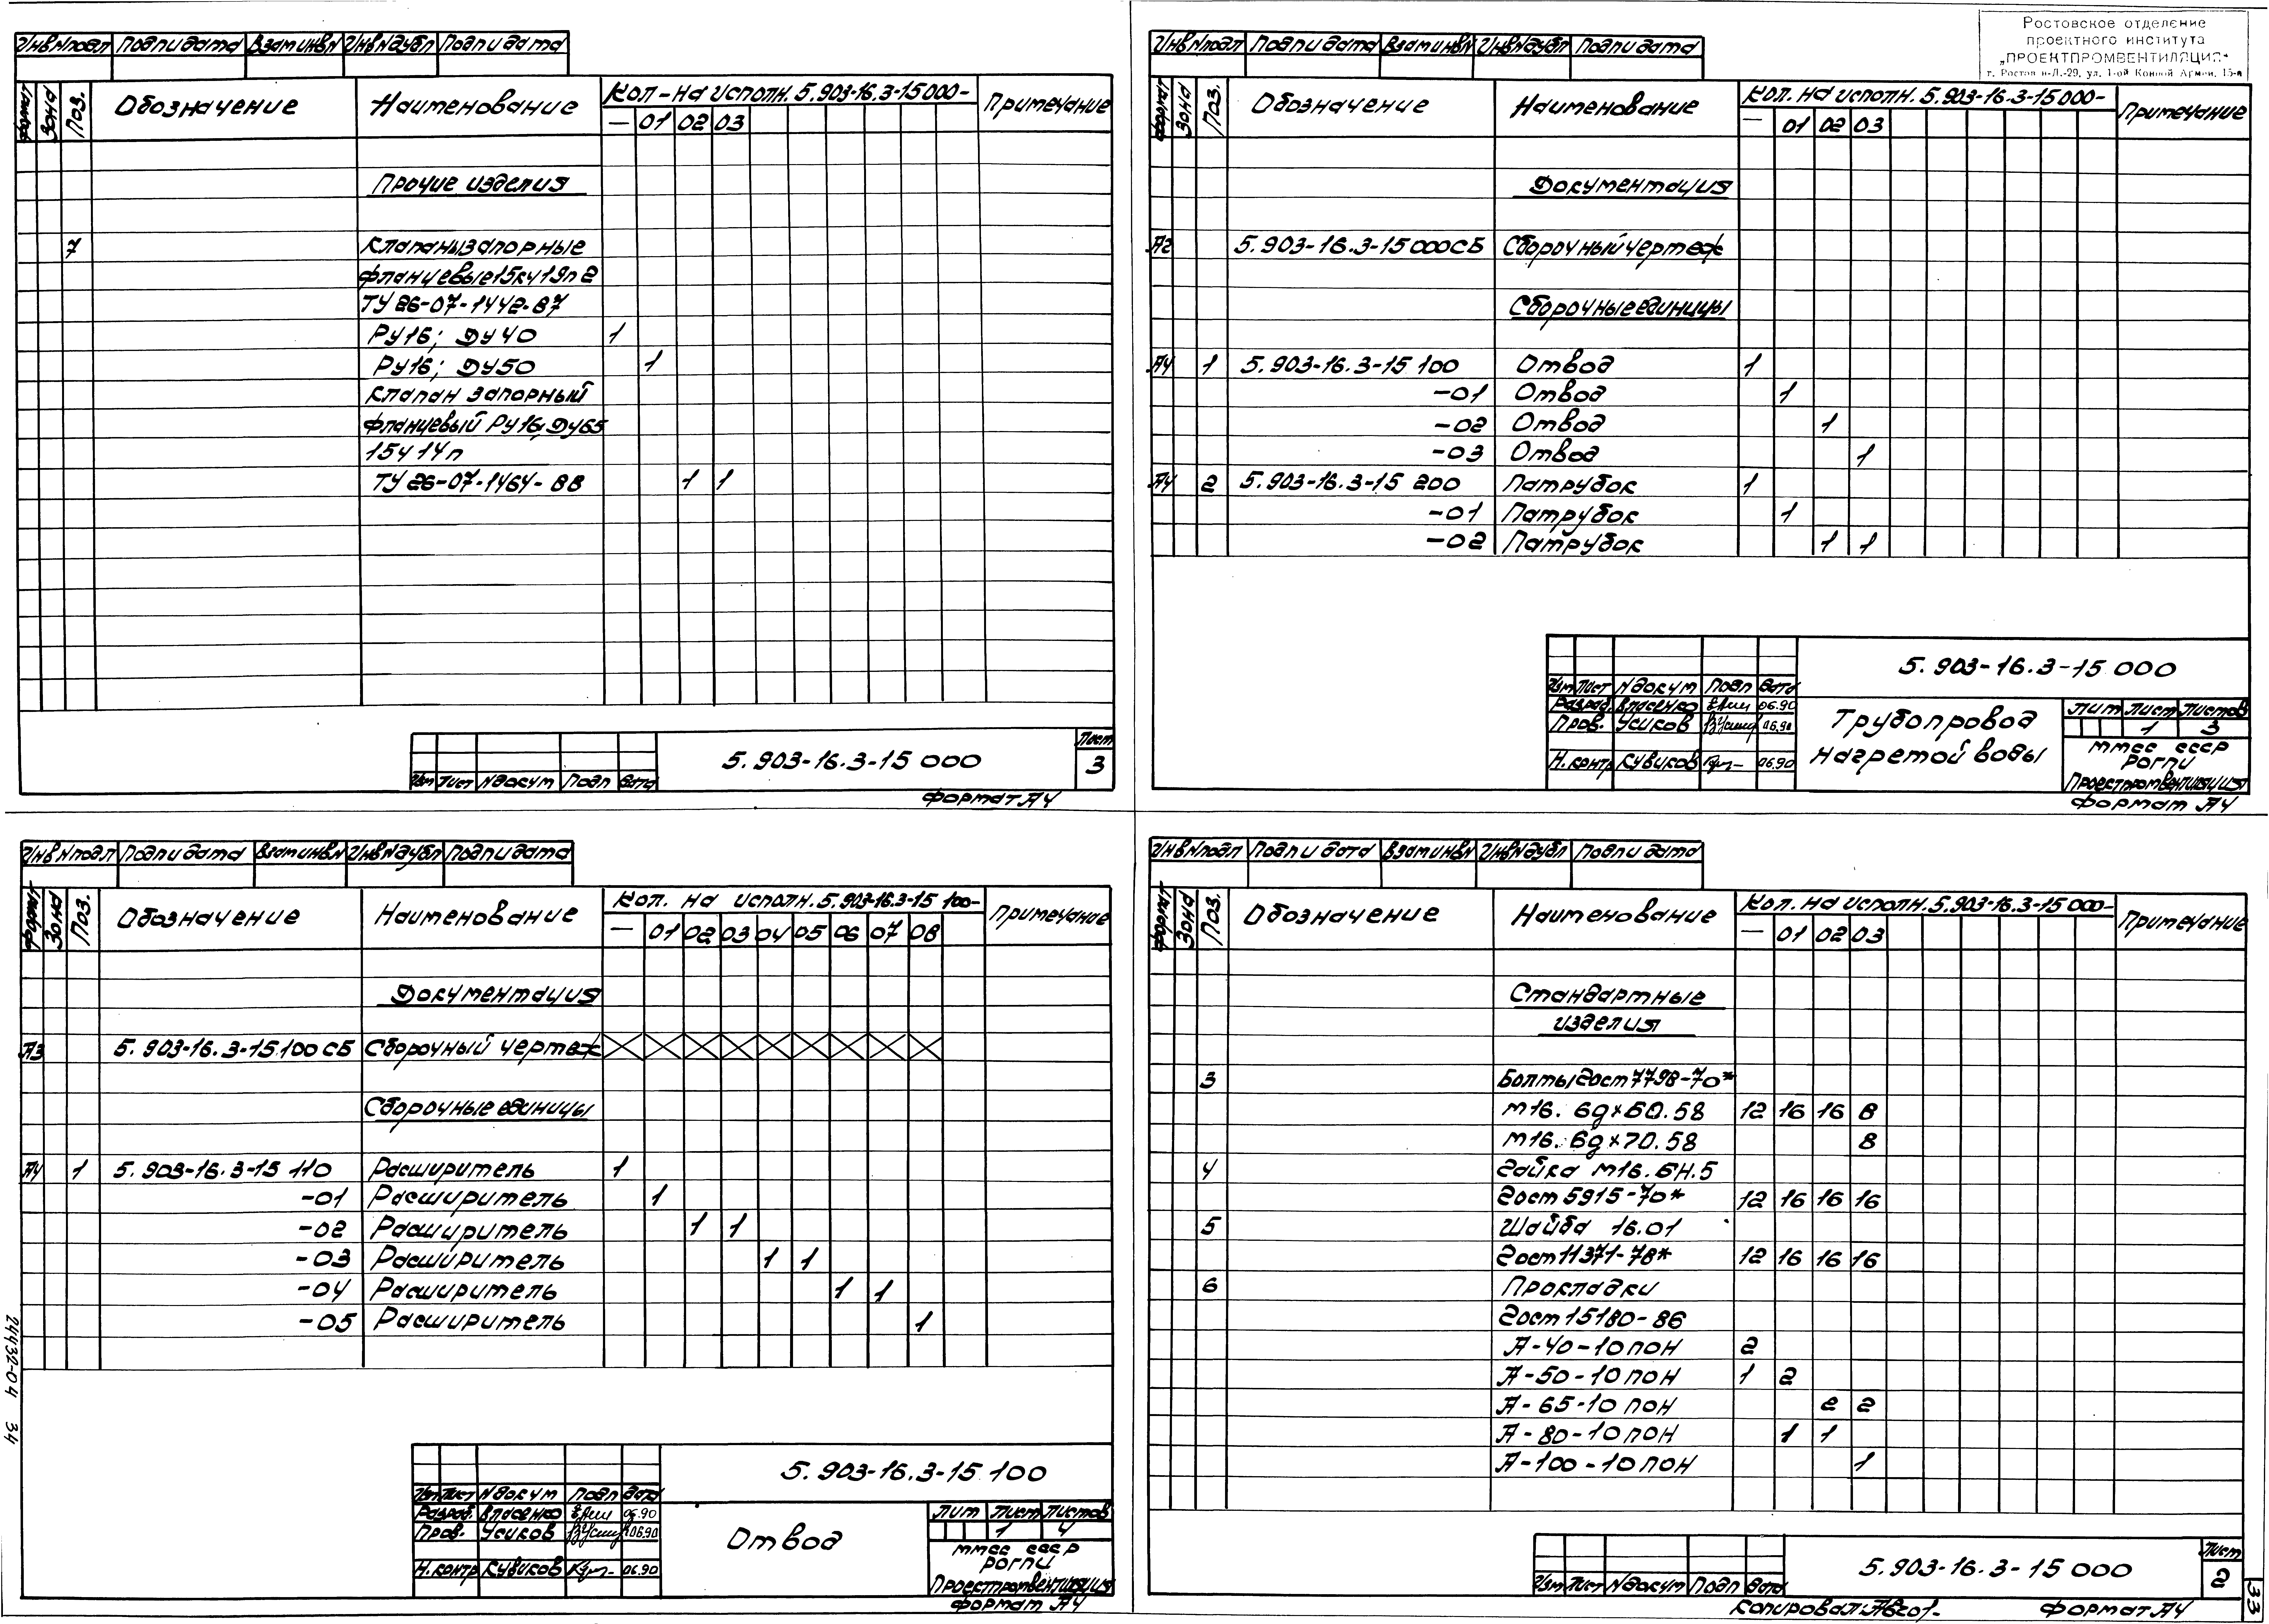 Инв N подл Подп и дата Взам инв N Инв N дубл Подп и дата
Формат Зона Поз. Обозначение Наименование Кол - на исполн. 5.903-16.3-15000- Примечание
— 01 02 03
Прочие изделия
7 Клапаны запорные
фланцевые 15кч 19п 2
ТУ 26-07-1442-87
Ру16; Ду 40 1
Ру16; Ду50 1
Клапан запорный
фланцевый Ру16, Ду65
15ч 14п
ТУ 26-07-1464-88 1 1
Изм Лист N докум Подп Дата 5.903-16.3-15 000 Лист 3
Формат А4
Ростовское отделение
проектного института
„ПРОЕКТПРОМВЕНТИЛЯЦИЯ"
г. Ростов н-Д.-29, ул. 1-ой Конной Армии, 15-а
Инв N подл Подп и дата Взам инв N Инв N дубл Подп и дата
Формат Зона Поз. Обозначение Наименование Кол. на исполн. 5.903-16.3-15000- Примечание
— 01 02 03
Документация
А2 5.903-16.3-15000СБ Сборочный чертеж
Сборочные единицы
А4 1 5.903-16.3-15 100 Отвод 1
-01 Отвод 1
-02 Отвод 1
-03 Отвод 1
А4 2 5.903-16.3-15 200 Патрубок 1
-01 Патрубок 1
-02 Патрубок 1 1
5.903-16.3-15 000
Изм Лист N докум Подп Дата
Разраб. Власенко 06.90
Пров. Усиков 06.90
Н. контр Кувиков 06.90
Трубопровод
нагретой воды
Лит Лист Листов
1 3
ММСС СССР
РОГПИ
Проектпромвентиляция
Формат А4
Инв N подл Подп и дата Взам инв N Инв N дубл Подп и дата
Формат Зона Поз. Обозначение Наименование Кол. на исполн. 5.903-16.3-15 100- Примечание
— 01 02 03 04 05 06 07 08
Документация
А3 5.903-16.3-15 100 СБ Сборочный чертеж
Сборочные единицы
А4 1 5.903-16.3-15 110 Расширитель 1
-01 Расширитель 1
-02 Расширитель 1 1
-03 Расширитель 1 1
-04 Расширитель 1 1
-05 Расширитель 1
24432-04 34
5.903-16.3-15 100
Изм Лист N докум Подп Дата
Разраб. Власенко 06.90
Пров. Усиков 06.90
Н. контр Кувиков 06.90
Отвод
Лит Лист Листов
1 4
ММСС СССР
РОГПИ
Проектпромвентиляция
Формат А4
Инв N подл Подп и дата Взам инв N Инв N дубл Подп и дата
Формат Зона Поз. Обозначение Наименование Кол. на исполн. 5.903-16.3-15 000- Примечание
— 01 02 03
Стандартные
изделия
3 Болты Гост 7798-70*
М16. 6g×60.58 12 16 16 8
М16. 6g×70.58 8
4 Гайка М16.6Н.5
Гост 5915-70* 12 16 16 16
5 Шайба 16.01
Гост 11371-78* 12 16 16 16
6 Прокладки
Гост 15180-86
А-40-10 ПОН 2
А-50-10 ПОН 1 2
А-65-10 ПОН 2 2
А-80-10 ПОН 1 1
А-100-10 ПОН 1
Изм Лист N докум Подп Дата 5.903-16.3-15 000 Лист 2
Копировал Формат А4
33